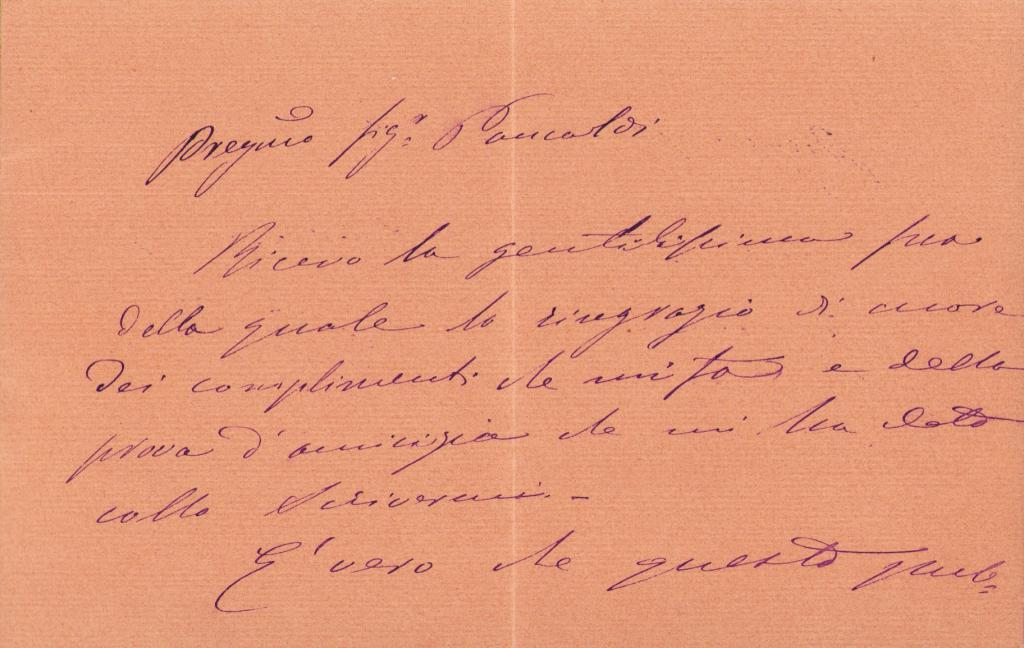 Pregmo Sigr. Pancaldi
Ricevo la gentilissima sua
della quale la ringrazio di cuore
dei complimenti che mi fa e della
prova d'amicizia che mi ha dato
collo scrivermi. -
E' vero che questo pub=